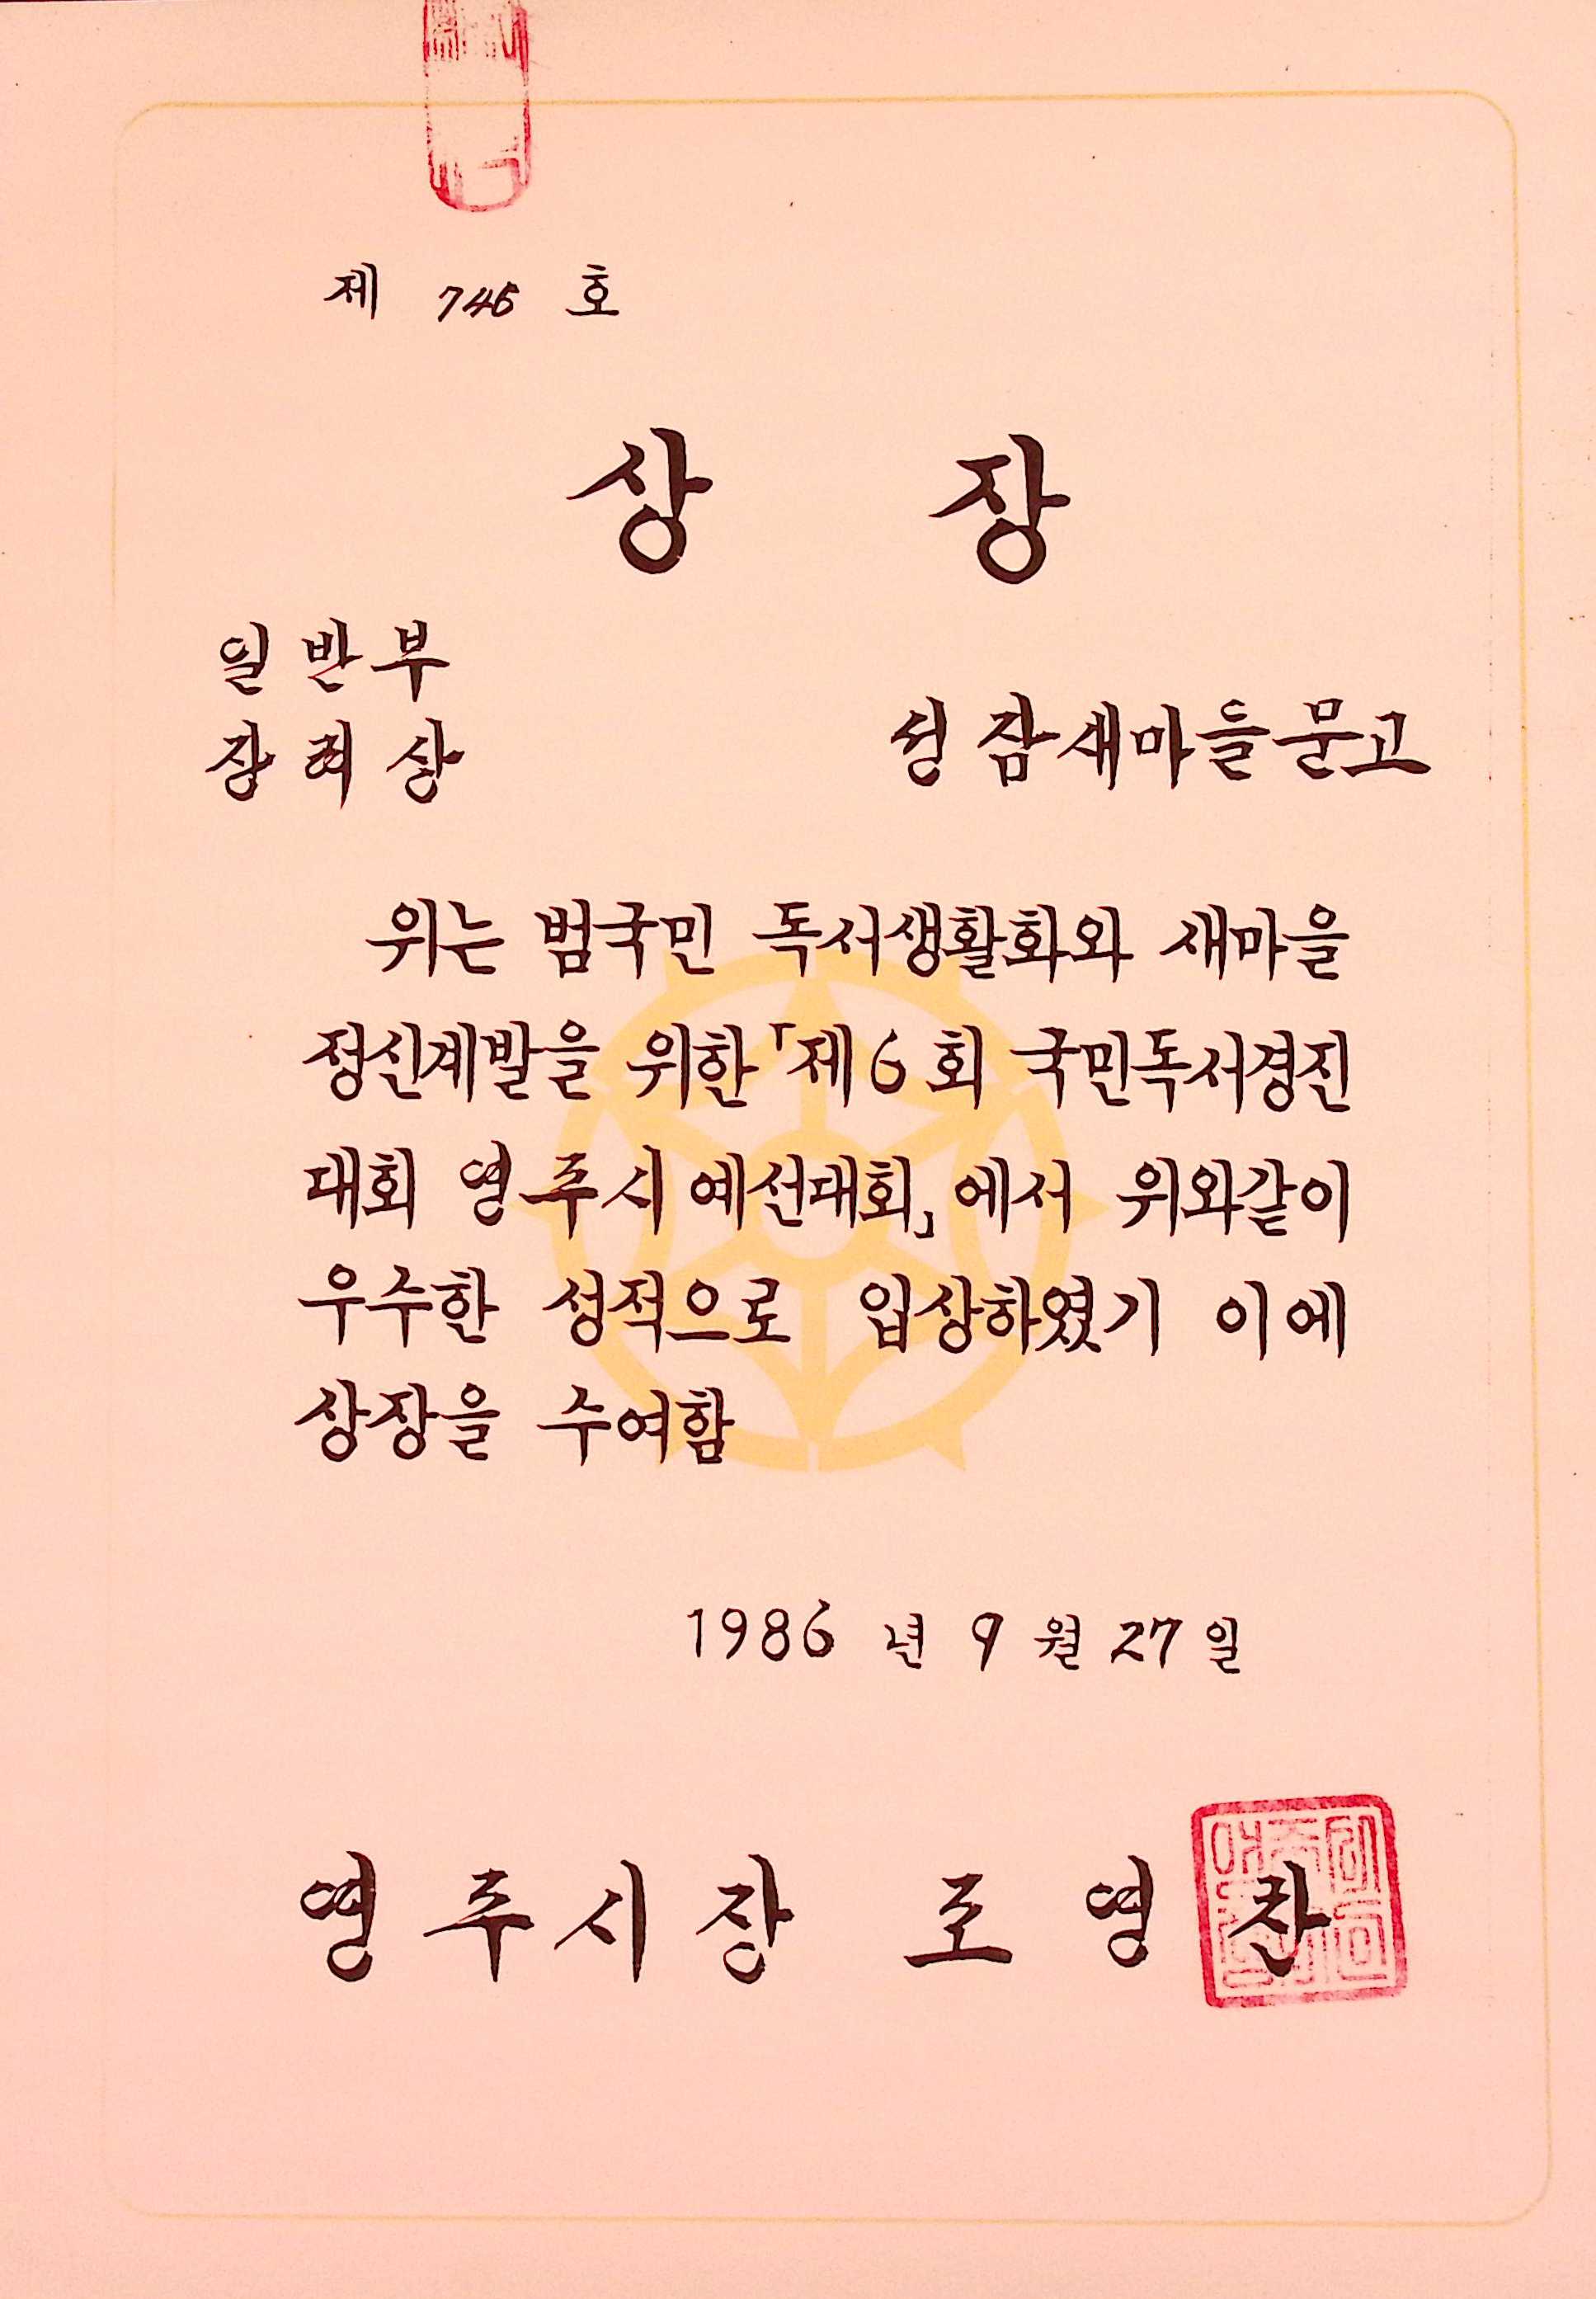 제 746 호
상 장
일반부
장려상
성잠새마을문고
위는 범국민 독서생활화와 새마을
정신계발을 위한「제6회 국민독서경진
대회 영주시 예선대회」에서 위와같이
우수한 성적으로 입상하였기 이에
상장을 수여함
1986 년 9 월 27 일
영주시장 조영찬